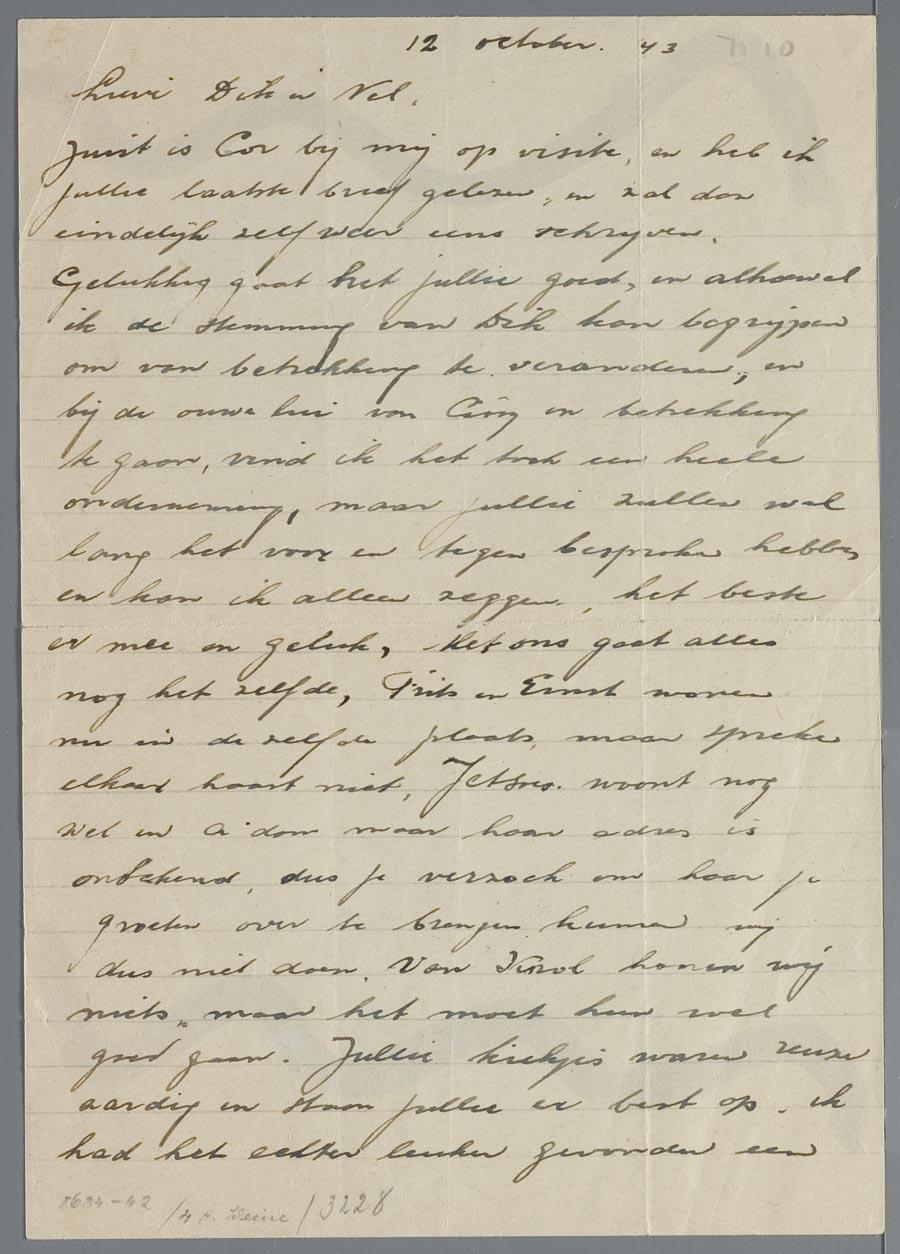 12 october. 43
Lieve Dik en Nel,
Juist is Cor bij mij op visite, en heb ik
jullie laatste brief gelezen, en zal dan
eindelijk zelf weer eens schrijven.
Gelukkig gaat het jullie goed, en alhoewel
ik de stemming van Dik kan begrijpen
om van betrekking te veranderen, en
bij de ouwe lui van Ciny in betrekking
te gaan, vind ik het toch een heele
onderneming, maar jullie zullen wel
lang het voor en tegen besproken hebben
en kan ik alleen zeggen, het beste
er mee en geluk, Met ons gaat alles
nog het zelfde, Frits en Ernst wonen
nu in de zelfde plaats, maar spreken
elkaar haast niet, woont nog
wel in A'dam maar haar adres is
onbekend, dus je verzoek om haar je
groeten over te brengen kunnen wij
dus niet doen. Van hooren wij
niets, maar het moet hun wel
goed gaan. Jullie kiekjes waren reuze
aardig en staan jullie er best op. ik
had het echter leuker gevonden een
8634-42 / 3228